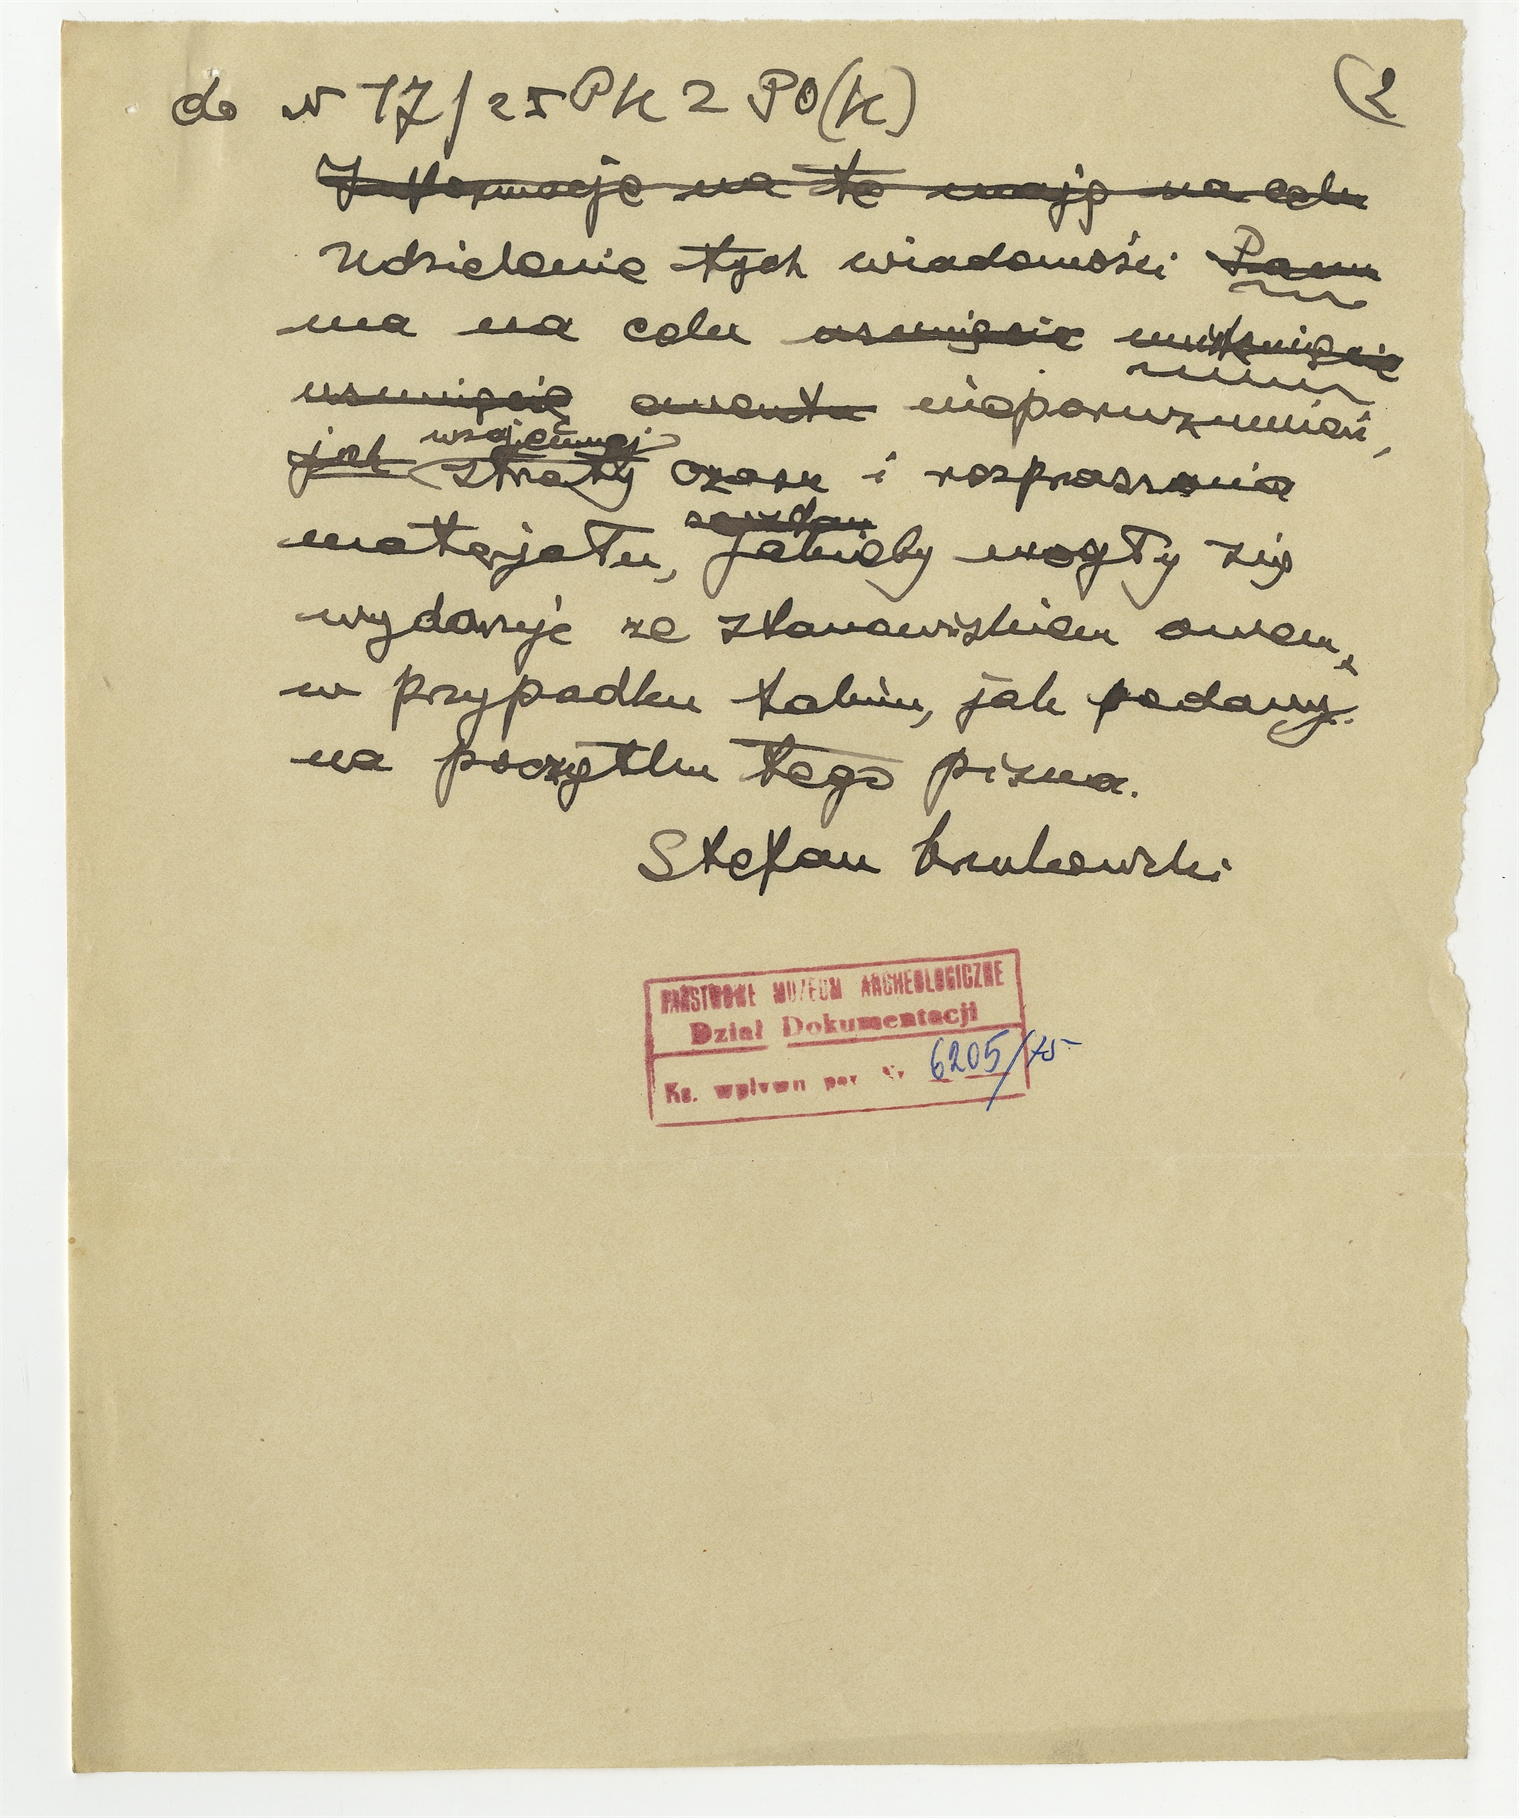 do N 17/25 PK 2 PO(K)
(2
Informacje na te mają na celu
Udzielenie tych wiadomości Panu
ma na celu usunięcie uniknięcie
usunięcie ewentu nieporozumień,
jak wzajemnej straty czasu i rozpraszania
materjału, jakieby mogły się
wydarzyć ze stanowiskiem owem,
w przypadku takim, jak podany
na początku tego pisma.
Stefan Krukowski
PAŃSTWOWE MUZEUM ARCHEOLOGICZNE
Dział Dokumentacji
Ks. wpływu poz. Nr 6205/75